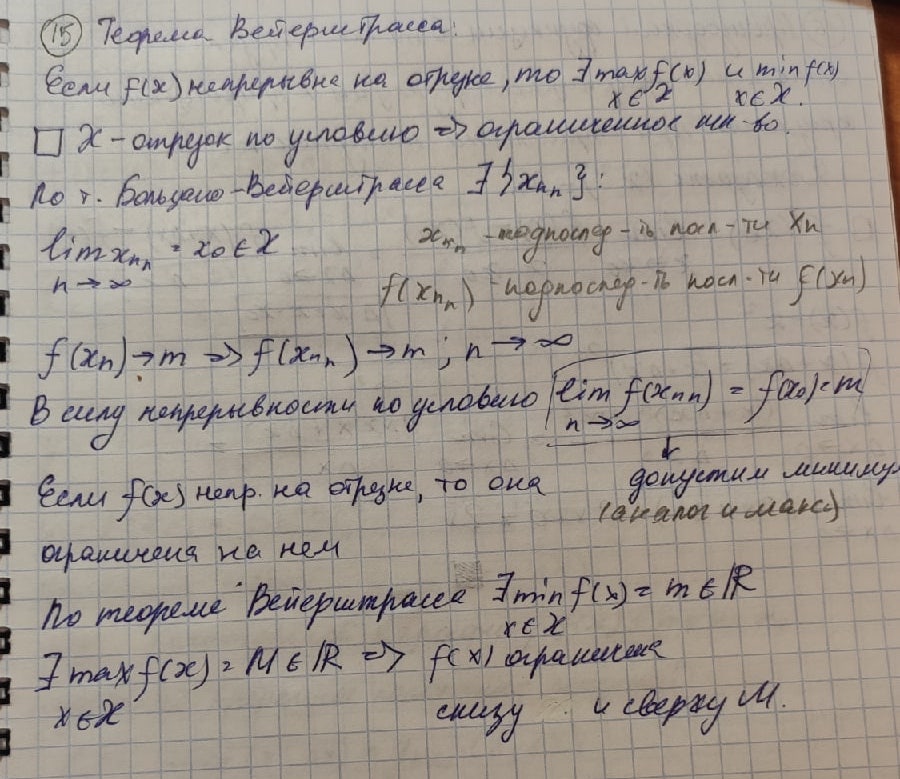 15 Теорема Вейерштрасса:
Если f(x) непрерывна на отрезке, то ∃ max f(x) и min f(x)
x∈X x∈X.
□ X – отрезок по условию => ограниченное мн-во.
По т. Больцано-Вейерштрасса ∃ {x_{n_n}}:
lim x_{n_n} = x₀ ∈ X x_{n_n} - подпослед-ть посл-ти x_n
n→∞ f(x_{n_n}) - подпослед-ть посл-ти f(x_n)
f(x_n) → m => f(x_{n_n}) → m ; n → ∞
В силу непрерывности по условию lim f(x_{n_n}) = f(x₀) = m
n→∞
↓
Если f(x) непр. на отрезке, то она допустим минимум
(аналог и макс)
ограничена на нем
По теореме Вейерштрасса ∃ min f(x) = m ∈ ℝ
x∈X
∃ max f(x) = M ∈ ℝ => f(x) ограничена
x∈X снизу и сверху M.